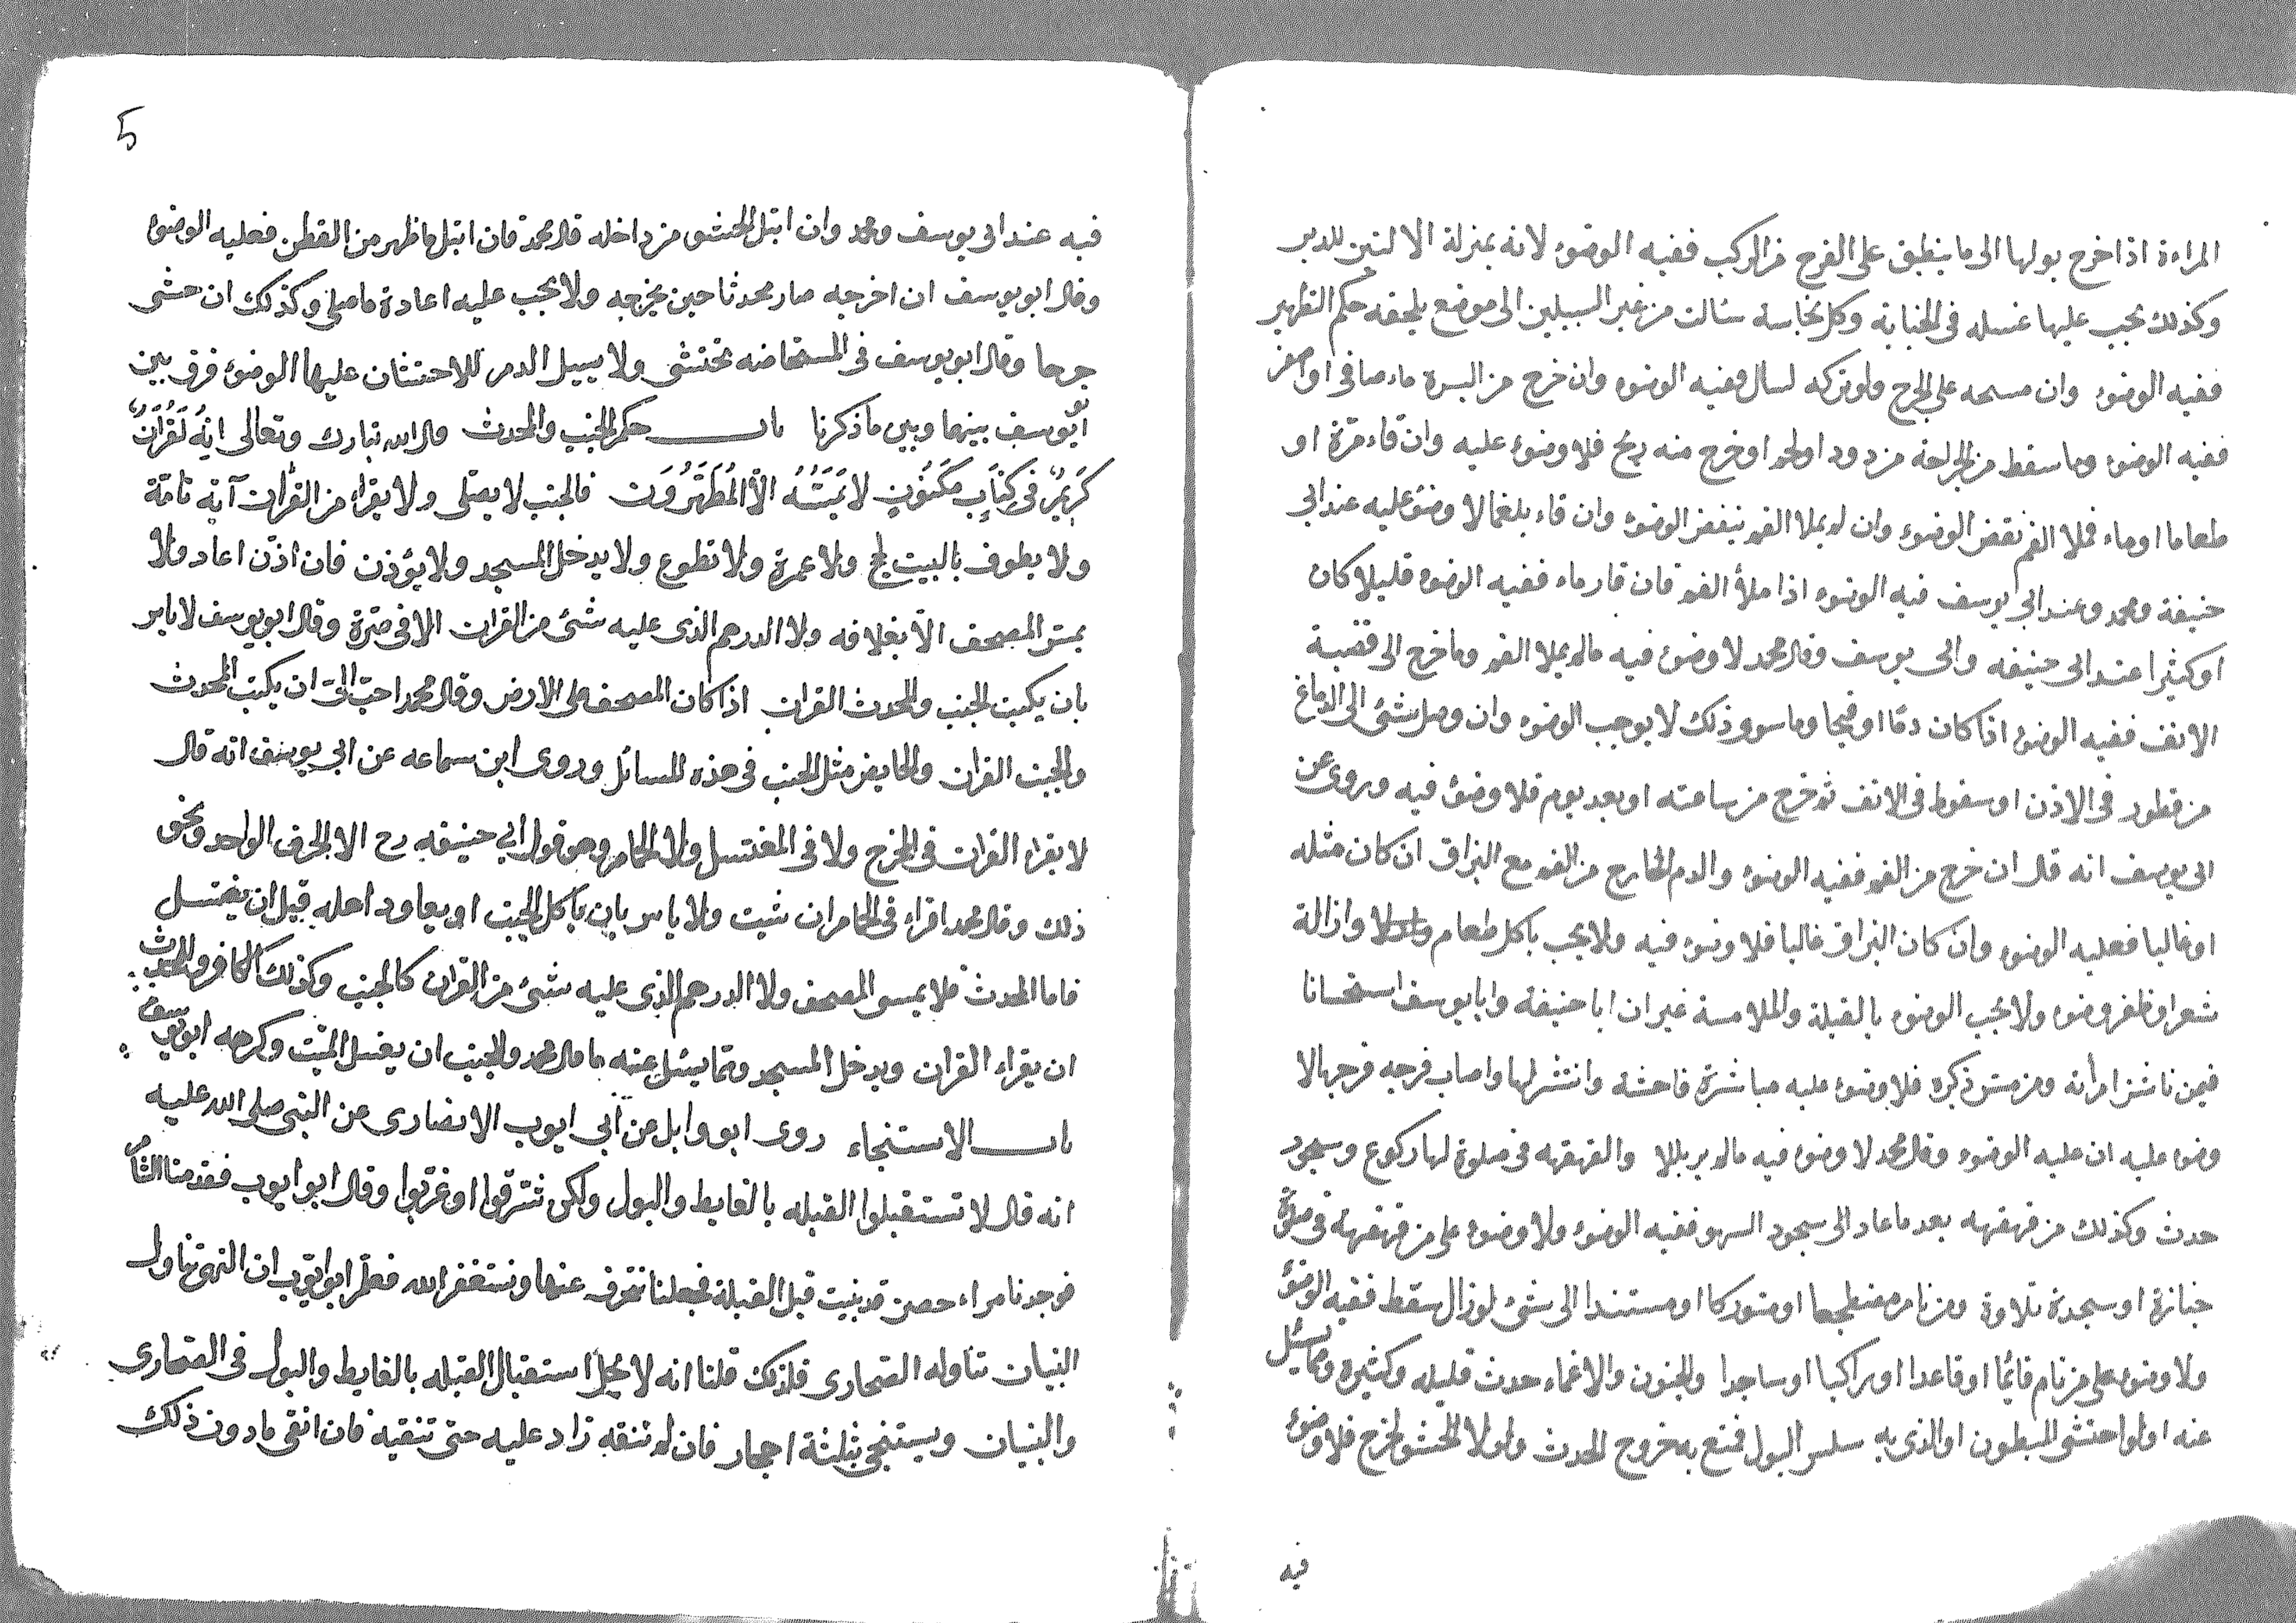 المراءة اذا خرج بولها الى ما ينطبق على الفرج من الركب ففيه الوضوء لانه بمنزلة الاليتين للدبر
وكذلك يجب عليها غسله فى الجنابة وكل نجاسة سالت من غير السبيلين الى موضع يلحقه حكم التطهير
ففيه الوضوء وان مسحه على الجرح ولو تركه لسال ففيه الوضوء وان خرج من البسرة ماء صافى او اصفر
ففيه الوضوء وما سقط من الجراحة من دود او لحم او خرج منه ريح فلا وضوء عليه وان قاء مرّة او
طعاما او ماء فملا الفم نقض الوضوء وان لم يملا الفم ينقض الوضوء وان قاء بلغما لا وضوء عليه عند ابى
حنيفة ومحمد وعند ابي يوسف فيه الوضوء اذا ملأ الفم فان قاء دماء ففيه الوضوء قليلا كان
او كثيرا عند ابى حنيفه وابى يوسف وقال محمد لا وضوء فيه مالم يملا الفم وما خرج الى قصبة
الانف ففيه الوضوء اذا كان دمّا او قيحا وما سوى ذلك لا يوجب الوضوء وان وصل شئ الى الدماغ
من قطور فى الاذن او سعوط فى الانف ثم خرج من ساعته او بعد يوم فلا وضوء فيه وروى عن
ابى يوسف انه قال ان خرج من الفم ففيه الوضوء والدم الخارج من الفم مع البزاق ان كان مثله
او غالبا فعليه الوضوء وان كان البزاق غالبا فلا وضوء فيه ولا يجب باكل طعام ولا ازالة
شعر او ظفر وضوء ولا يجب الوضوء بالقبلة والملامسة غير ان ابا حنيفة وابا يوسف استحسانا
فيمن باشر امرأته ومن مسّ ذكره فلا وضوء عليه مباشرة فاحشة وانتشر لها واصاب فرجه فرجها لا
وضوء عليه ان عليه الوضوء وقال محمد لا وضوء فيه مالم ير بللا والقهقهه فى صلوة لها ركوع وسجود
حدث وكذلك من قهقهه بعد ما عاد الى سجود السهو ففيه الوضوء ولا وضوء على من قهقهة فى صلوة
جنازة او سجدة تلاوة ومن نام مضطجعا او متوركا او مستندا الى شئ لو زال سقط ففيه الوضوء
ولا وضوء على من نام قائما او قاعدا او راكبا او ساجدا والجنون والاغماء حدث قليله وكثيره ومما يسئل
عنه او لو احتشى المبطون او الذى به سلس البول فمنع به خروج الحدث ولولا الحشو لخرج فلا وضوء
فيه
5
فيه عند ابى يوسف ومحمد وان ابتل الحشو من داخله قال محمد فان ابتل ما ظهر من القطن فعليه الوضوء
وقال ابو يوسف ان اخرجه صار محدثا حين يخرجه ولا يجب عليه اعادة ما صلى وكذلك ان حشى
جرحا وقال ابو يوسف فى المستحاضه تحتشى ولا يسيل الدم للاحتشان عليها الوضوء فرق بين
ابو يوسف بينهما وبين ما ذكرنا باب حكم الجنب والمحدث قال الله تبارك وتعالى انِّهُ لَقُرْاَنٌ
كَرِيمٌ فى كِتَابٍ مَكْنُونٍ لا يَمَسُّهُ الاّ الْمُطَهَّرُونَ فالجنب لا يصلى ولا يقراء من القرأن آية تامّة
ولا يطوف بالبيت لحج ولا عمرة ولا تطوع ولا يدخل المسجد ولا يؤذن فان اذّن اعاد ولا
يمس المصحف الاّ بغلافه ولا الدرهم الذى عليه شئ من القران الا فى صرّة وقال ابو يوسف لا باس
بان يكتب الجنب والمحدث القران اذا كان المصحف على الارض وقال محمد احبّ الىّ ان يكتب المحدث
والجنب القران والحايض مثل الجنب فى هذه المسائل وروى ابن سماعه عن ابى يوسف انه قال
لا يقراء القران فى المخرج ولا فى المغتسل ولا الحمام وهو قول ابي حنيفه رح الا الحرف الواحد ونحو
ذلك وقال محمد اقراء فى الحمام ان شيت ولا باس بان ياكل الجنب او يعاود اهله قبل ان يغتسل
فاما المحدث فلا يمس المصحف ولا الدرهم الذى عليه شئ من القران كالجنب وكذلك الكافر والمحدث
ان يقراء القران ويدخل المسجد ومما يسئل عنه ما قال محمد والجنب ان يغسل الميّت وكرهه ابو يوسف
باب الاستنجاء روى ابو وابل عن أبى ايوب الانصارى عن النبى صلى الله عليه
انه قال لا تستقبلوا القبله بالغايط والبول ولكن شرقوا او غربّوا وقال ابو ايوب فقدمنا الشام
فوجدنا مراءحض قد بنيت قبل القبلة فجعلنا نتحرف عنها ونستغفر الله فعلم ابو ايّوب ان النهى تناول
البنيان تناوله الصحارى فلذلك قلنا انه لا يحل استقبال القبله بالغايط والبول فى الصحارى
والبنيان ويستنجى بثلثة احجار فان لم تنقه زاد عليه حتى تنقيه فان انقى ما دون ذلك